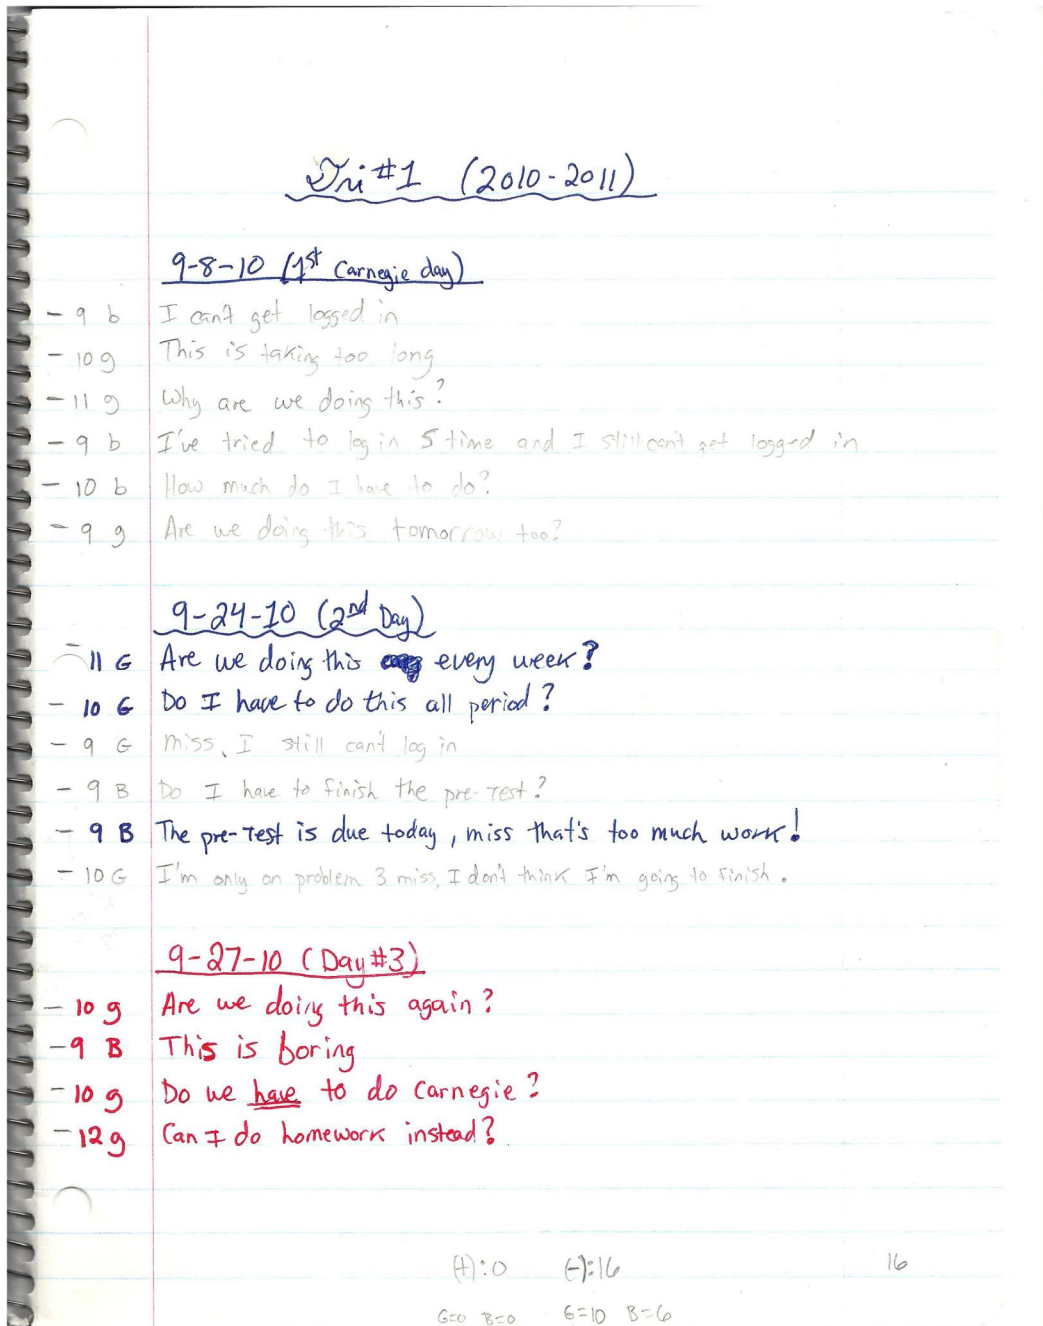 Tri #1 (2010-2011)
9-8-10 (1st Carnegie day)
- 9 b I can't get logged in
- 10 g This is taking too long
- 11 g Why are we doing this?
- 9 b I've tried to log in 5 time and I still can't get logged in
- 10 b How much do I have to do?
- 9 g Are we doing this tomorrow too?
9-24-10 (2nd Day)
- 11 G Are we doing this every week?
- 10 G Do I have to do this all period?
- 9 G Miss, I still can't log in
- 9 B Do I have to finish the pre-Test?
- 9 B The pre-Test is due today, miss that's too much work!
- 10 G I'm only on problem 3 miss, I don't think I'm going to finish.
9-27-10 (Day #3)
- 10 g Are we doing this again?
- 9 B This is boring
- 10 g Do we have to do Carnegie?
- 12 g Can I do homework instead?
(+):0 (-):16 16
G=0 B=0 G=10 B=6